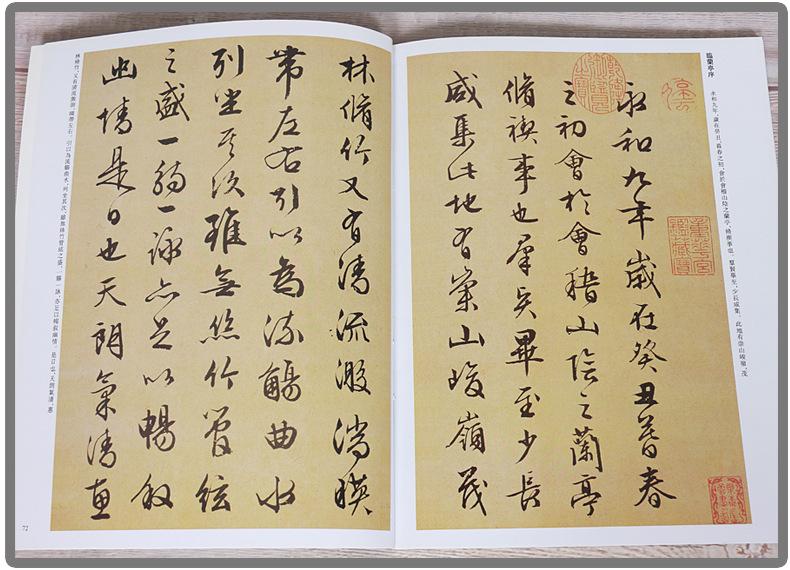 臨蘭亭序
永和九年，歲在癸丑，暮春之初，會於會稽山陰之蘭亭，脩禊事也。羣賢畢至，少長咸集。此地有崇山峻嶺，茂
永和九年歲在癸丑暮春
之初會於會稽山陰之蘭亭
脩禊事也羣賢畢至少長
咸集此地有崇山峻嶺茂
林脩竹又有清流激湍暎
帶左右引以為流觴曲水
列坐其次雖無絲竹管絃
之盛一觴一詠亦足以暢敘
幽情是日也天朗氣清惠
林脩竹，又有清流激湍，暎帶左右。引以為流觴曲水，列坐其次，雖無絲竹管絃之盛，一觴一詠，亦足以暢敘幽情。是日也，天朗氣清，惠
72